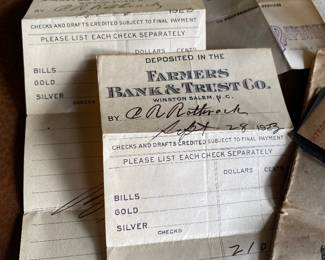 CHECKS AND DRAFTS CREDITED SUBJECT TO FINAL PAYMENT
PLEASE LIST EACH CHECK SEPARATELY
DOLLARS CENTS
BILLS
GOLD
SILVER
DEPOSITED IN THE
FARMERS
BANK & TRUST CO.
WINSTON SALEM, N.C.
BY C R Rothrock
Sept 28 1923
CHECKS AND DRAFTS CREDITED SUBJECT TO FINAL PAYMENT
PLEASE LIST EACH CHECK SEPARATELY
DOLLARS CENTS
BILLS
GOLD
SILVER
CHECKS